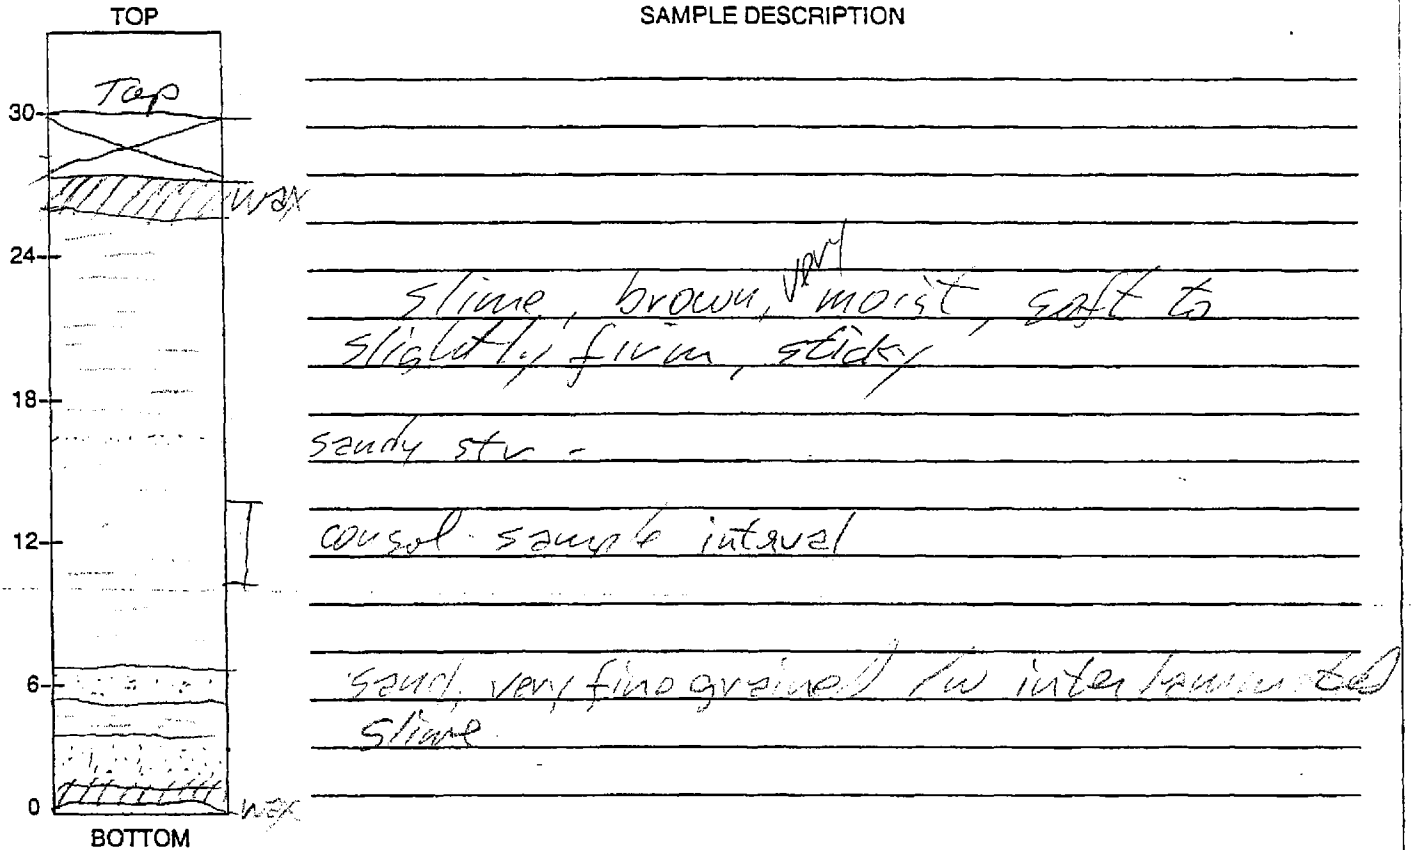 TOP
SAMPLE DESCRIPTION
Top
30
wax
24
very
slime, brown, moist, soft to
slightly firm, sticky
18
sandy str -
12
consol. sample interval
6
sand, very fine grained /w interlaminated
slime
0
wax
BOTTOM